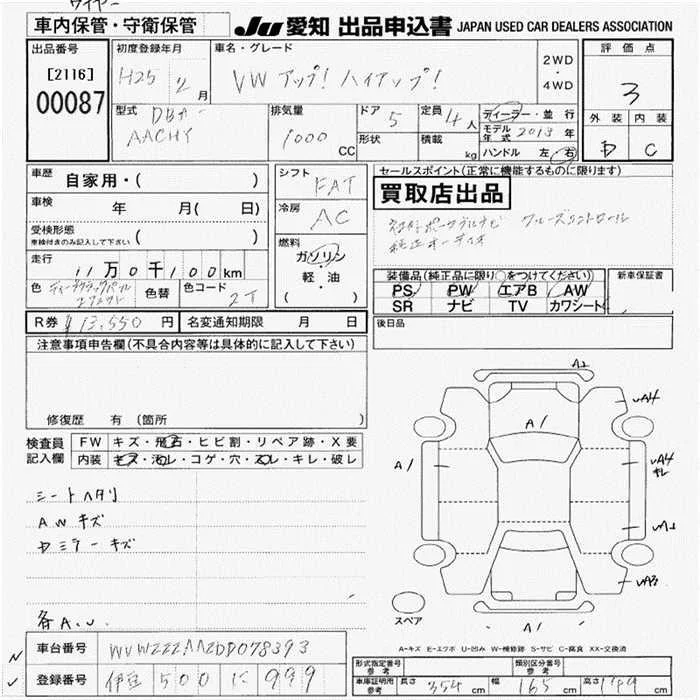 ワイヤー
車内保管・守衛保管
JU 愛知 出品申込書 JAPAN USED CAR DEALERS ASSOCIATION
出品番号
[2116]
00087
初度登録年月
H25 2 月
車名・グレード
VW アップ! ハイアップ!
2WD
・
4WD
評価点
3
外装 内装
D C
型式
DBA-
AACHY
排気量
1000 CC
ドア 5
形状
定員 4人
積載 kg
ディーラー・並行
モデル年式 2013 年
ハンドル 左・右
車歴 自家用・( )
車検 年 月( 日)
受検形態 ( )
車検付きのみ記入して下さい
走行
11万0千100km
色
色替
色コード 2T
シフト FAT
冷房 AC
燃料
ガソリン
軽・油
( )
セールスポイント(正常に機能するものに限ります)
買取店出品
純正ポータブルナビ クルーズコントロール
純正オーディオ
装備品(純正品に限り○をつけてください)
PS PW エアB AW
SR ナビ TV カワシート
新車保証書
後日品
R券 13,550 円
名変通知期限 月 日
注意事項申告欄(不具合内容等は具体的に記入して下さい)
修復歴 有 (箇所 )
検査員
記入欄
FW キズ・飛石・ヒビ割・リペア跡・X要
内装 キズ・汚れ・コゲ・穴・スレ・キレ・破レ
シートヘタリ
AWキズ
各A.U.
A2
A1
A1
A1
UA4
UA4
キレ
スペア
A-キズ E-エクボ U-凹み W-補修跡 S-サビ C-腐食 XX-交換済
車台番号 WVWZZZAAZDD078393
登録番号 伊豆 500 に 999
形式指定番号
参考
類別区分番号
参考
車庫証明用
参考
長さ 354 cm
幅 165 cm
高さ cm